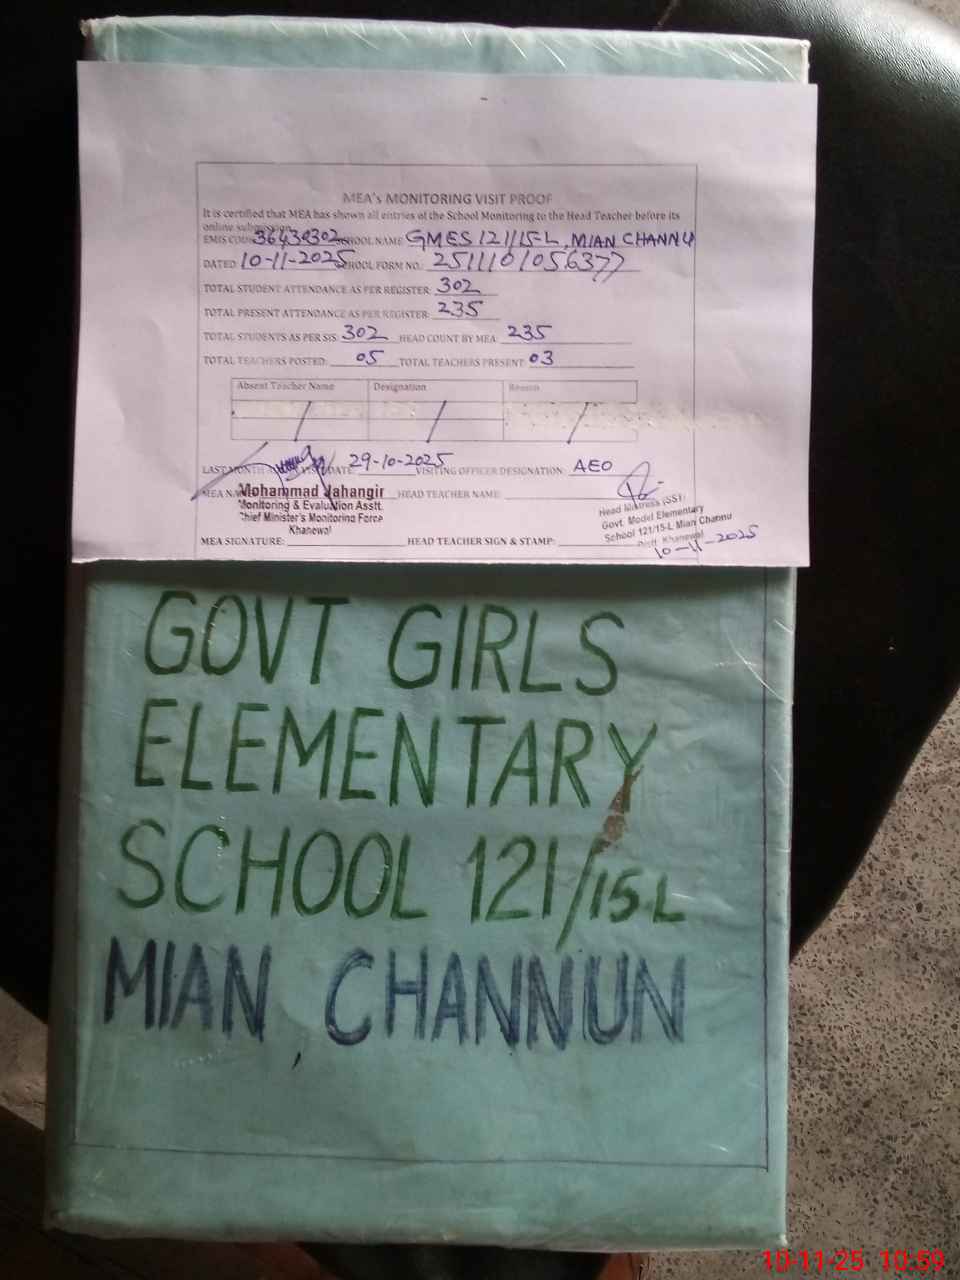 MEA's MONITORING VISIT PROOF
It is certified that MEA has shown all entries of the School Monitoring to the Head Teacher before its
online submission.
EMIS CODE 36430302 SCHOOL NAME GMES 121/15-L, MIAN CHANNU
DATED: 10-11-2025 SCHOOL FORM NO.: 2511101056377
TOTAL STUDENT ATTENDANCE AS PER REGISTER: 302
TOTAL PRESENT ATTENDANCE AS PER REGISTER: 235
TOTAL STUDENTS AS PER SIS: 302 HEAD COUNT BY MEA: 235
TOTAL TEACHERS POSTED: 05 TOTAL TEACHERS PRESENT: 03
Absent Teacher Name Designation Reason
LAST MONTH VISIT DATE: 29-10-2025 VISITING OFFICER DESIGNATION: AEO
MEA NAME HEAD TEACHER NAME:
Mohammad Jahangir
Monitoring & Evaluation Asstt.
Chief Minister's Monitoring Force
Khanewal
Head Mistress (SST)
Govt. Model Elementary
School 121/15-L Mian Channu
Distt. Khanewal
10-11-2025
MEA SIGNATURE: HEAD TEACHER SIGN & STAMP:
GOVT GIRLS
ELEMENTARY
SCHOOL 121/15-L
MIAN CHANNUN
10-11-25 10:59